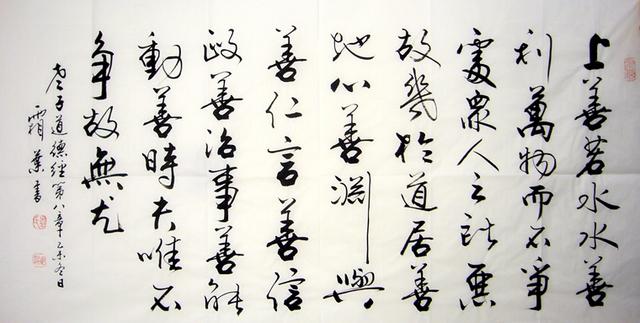 上善若水水善
利萬物而不爭
處眾人之所惡
故幾於道居善
地心善淵與
善仁言善信
政善治事善能
動善時夫唯不
争故無尤
老子道德經第八章乙未冬日
霜葉書